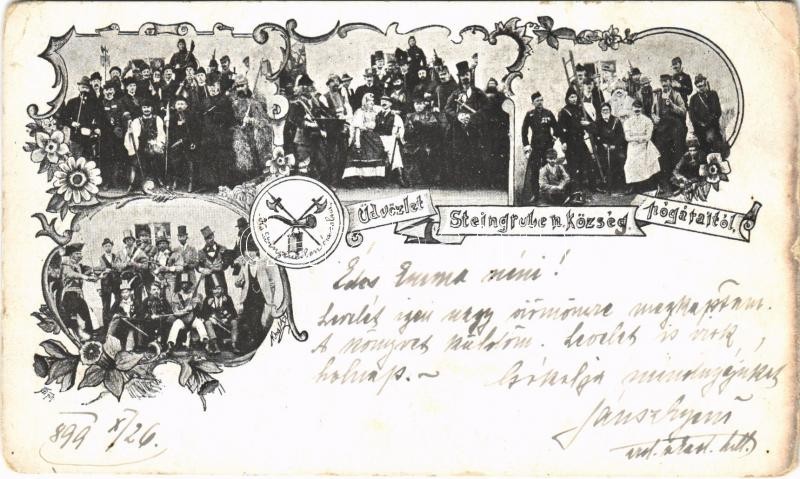 Üdvözlet Steingruben község polgáraitól,
Édes Emma néni!
Levelét igen nagy örömömre megkaptam.
A könyvet küldöm. Levelet is írok
holnap. ~ Csókolja mindnyájukat
Jánszky Jenő
899 X/26.